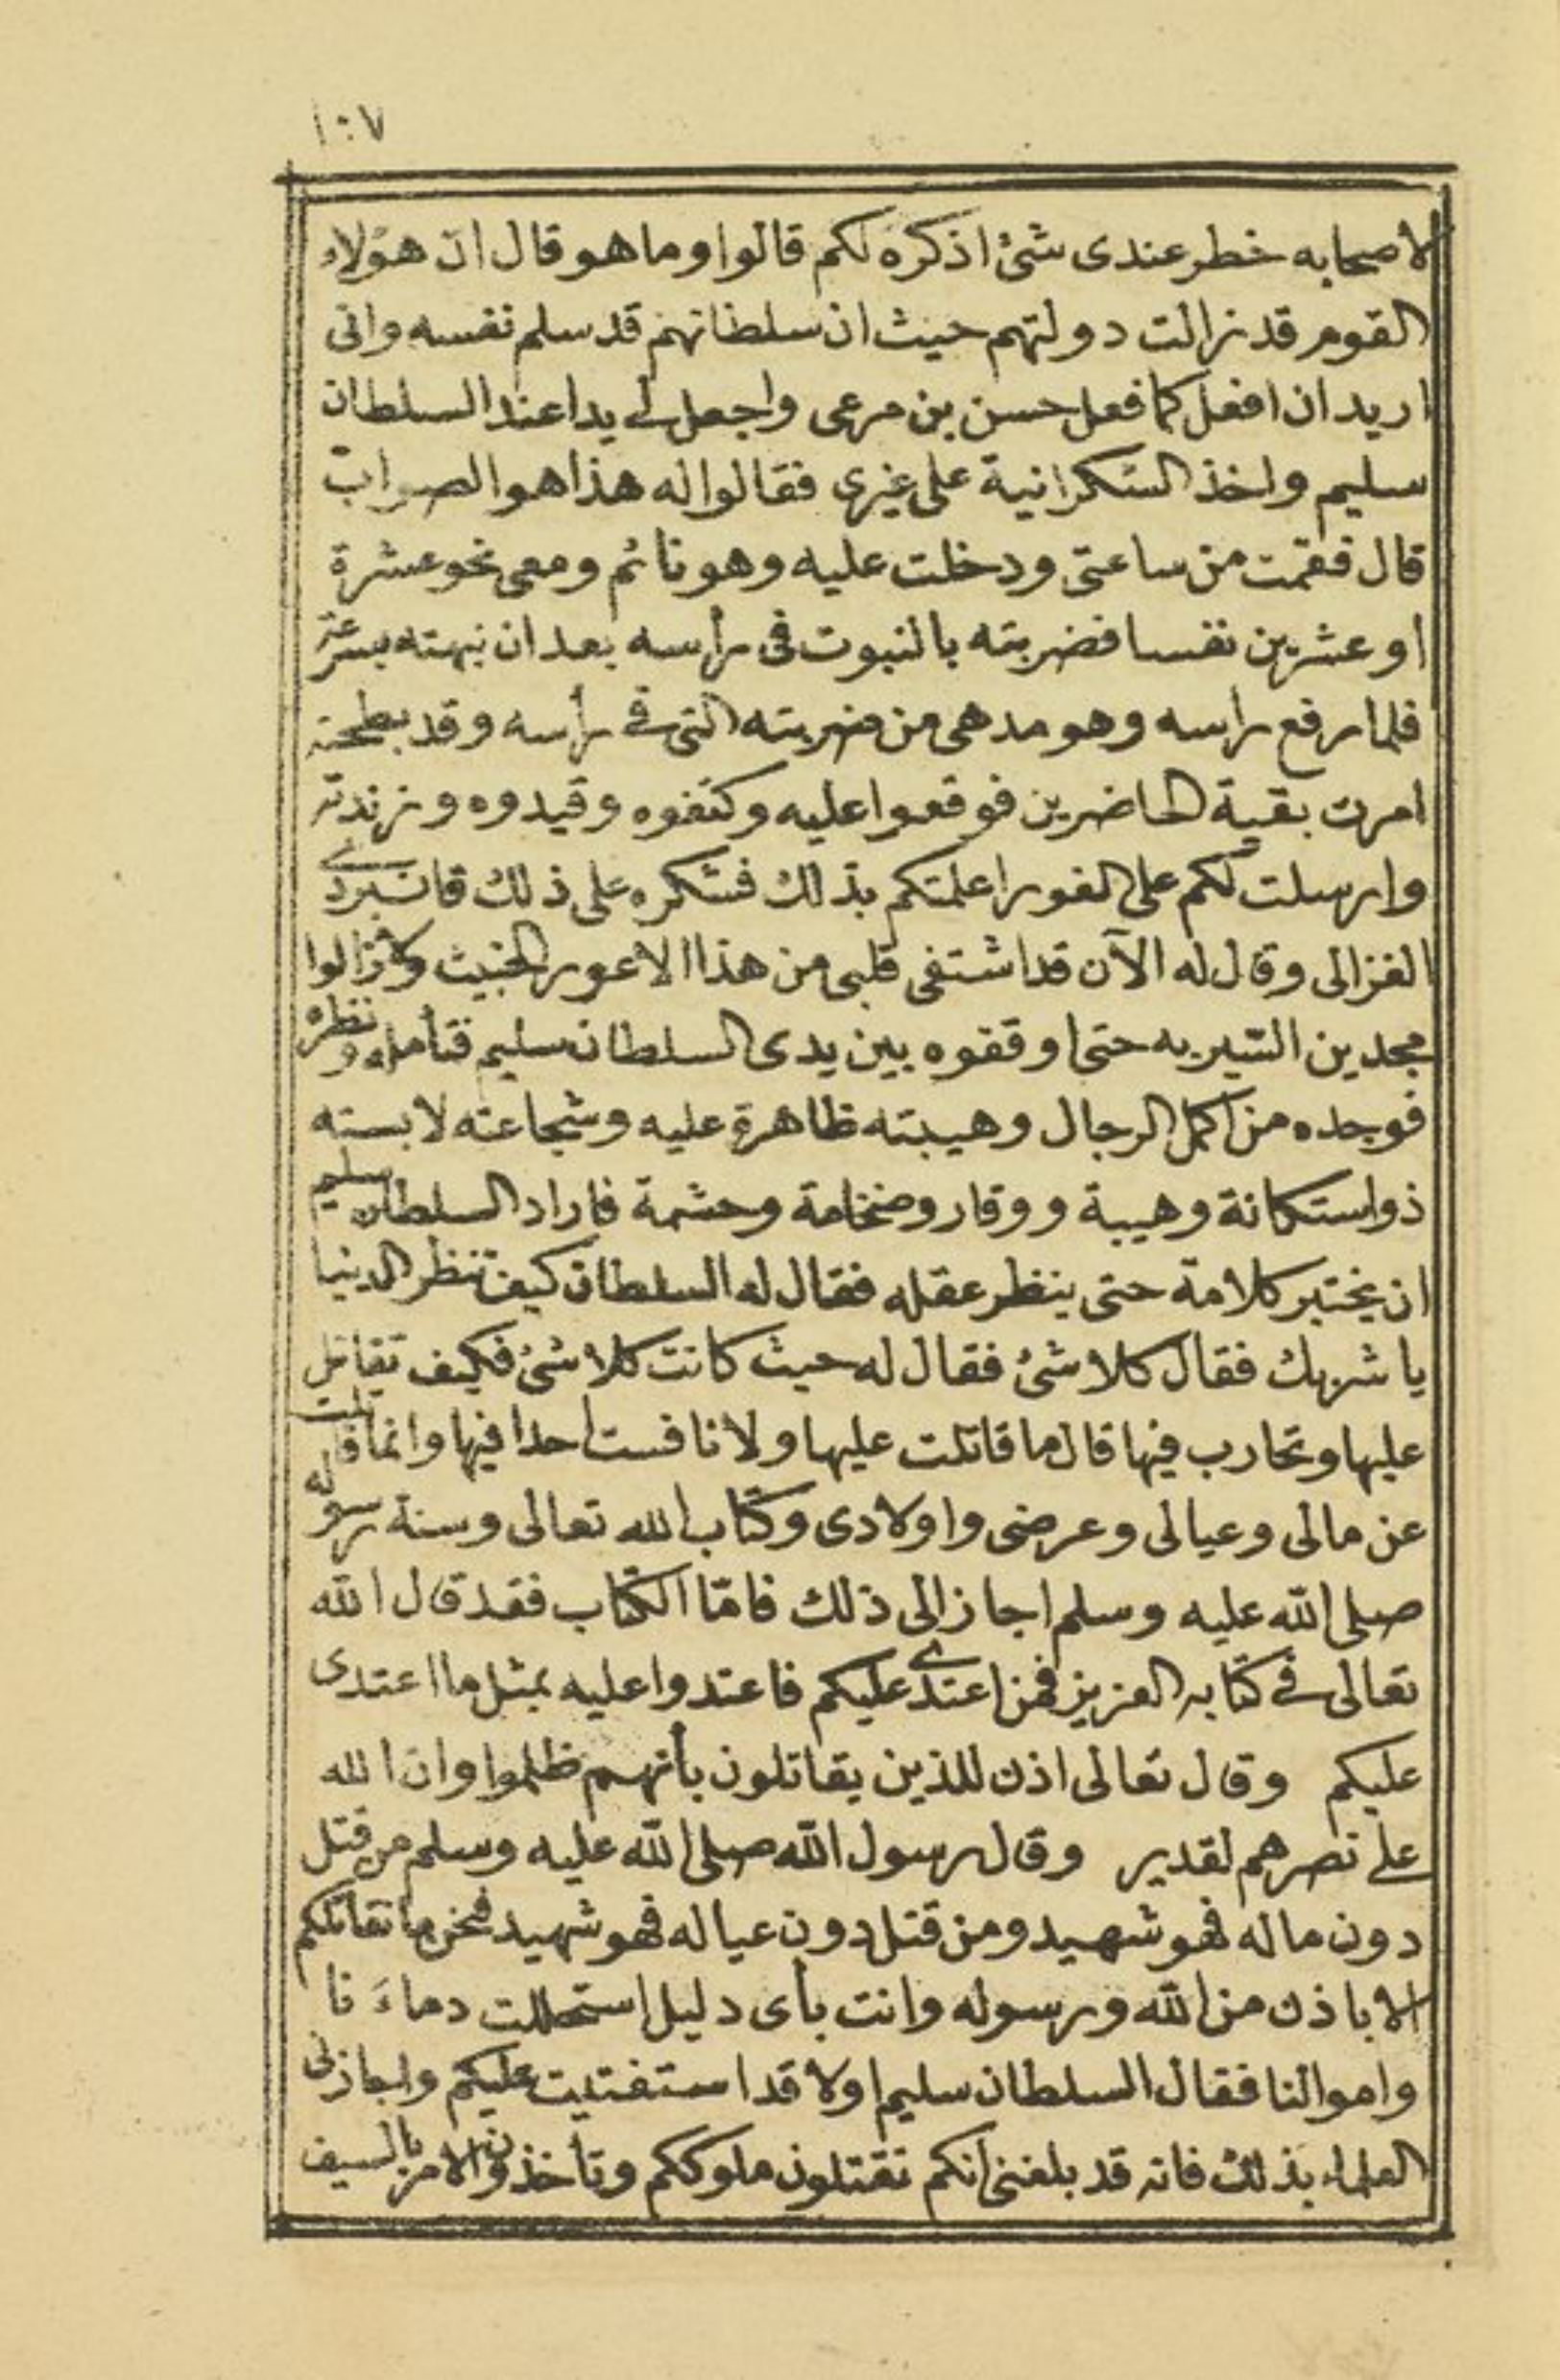 ١٠٧
لاصحابه خطر عندى شئ اذكره لكم قالوا وما هو قال ان هؤلاء
القوم قد زالت دولتهم حيث ان سلطانهم قد سلم نفسه وانى
اريد ان افعل كما فعل حسن بن مرعى واجعل لى يدا عند السلطان
سليم واخذ الشكرانية على غيرى فقالوا له هذا هو الصواب
قال فقمت من ساعتى ودخلت عليه وهو نائم ومعى نحو عشرة
او عشرين نفسا فضربته بالنبوت فى رأسه بعد ان نبهته بسرعة
فلما رفع راسه وهو مدهى من ضربته التى فى رأسه وقد بطحته
امرت بقية الحاضرين فوقعوا عليه وكتفوه وقيدوه وزندته
وارسلت لكم على الفور اعلمتكم بذلك فشكره على ذلك قانبردى
الغزالى وقال له الآن قد اشتفى قلبى من هذا الاعور الخبيث ولازالوا
مجدين السير به حتى اوقفوه بين يدى السلطان سليم فتأمله ونظره
فوجده من اكمل الرجال وهيبته ظاهرة عليه وشجاعته لابسته
ذو استكانة وهيبة ووقار وضخامة وحشمة فاراد السلطان سليم
ان يختبر كلامة حتى ينظر عقله فقال له السلطان كيف تنظر الدنيا
يا شربك فقال كلا شئ فقال له حيث كانت كلا شئ فكيف تقاتل
عليها وتحارب فيها قال ما قاتلت عليها ولا نافست احدا فيها وانما قاتلت
عن مالى وعيالى وعرضى واولادى وكتاب الله تعالى وسنة رسوله
صلى الله عليه وسلم اجاز الى ذلك فامّا الكتاب فقد قال الله
تعالى فى كتابه العزيز فمن اعتدى عليكم فاعتدوا عليه بمثل ما اعتدى
عليكم وقال تعالى اذن للذين يقاتلون بأنهم ظلموا وان الله
على نصرهم لقدير وقال رسول الله صلى الله عليه وسلم من قتل
دون ماله فهو شهيد ومن قتل دون عياله فهو شهيد فنحن ما نقاتلكم
الا باذن من الله ورسوله وانت بأى دليل استحللت دماءَنا
واموالنا فقال السلطان سليم اولا قد استفتيت عليكم واجازلى
العلماء بذلك فانه قد بلغنى انكم تقتلون ملوككم وتأخذون الامر بالسيف